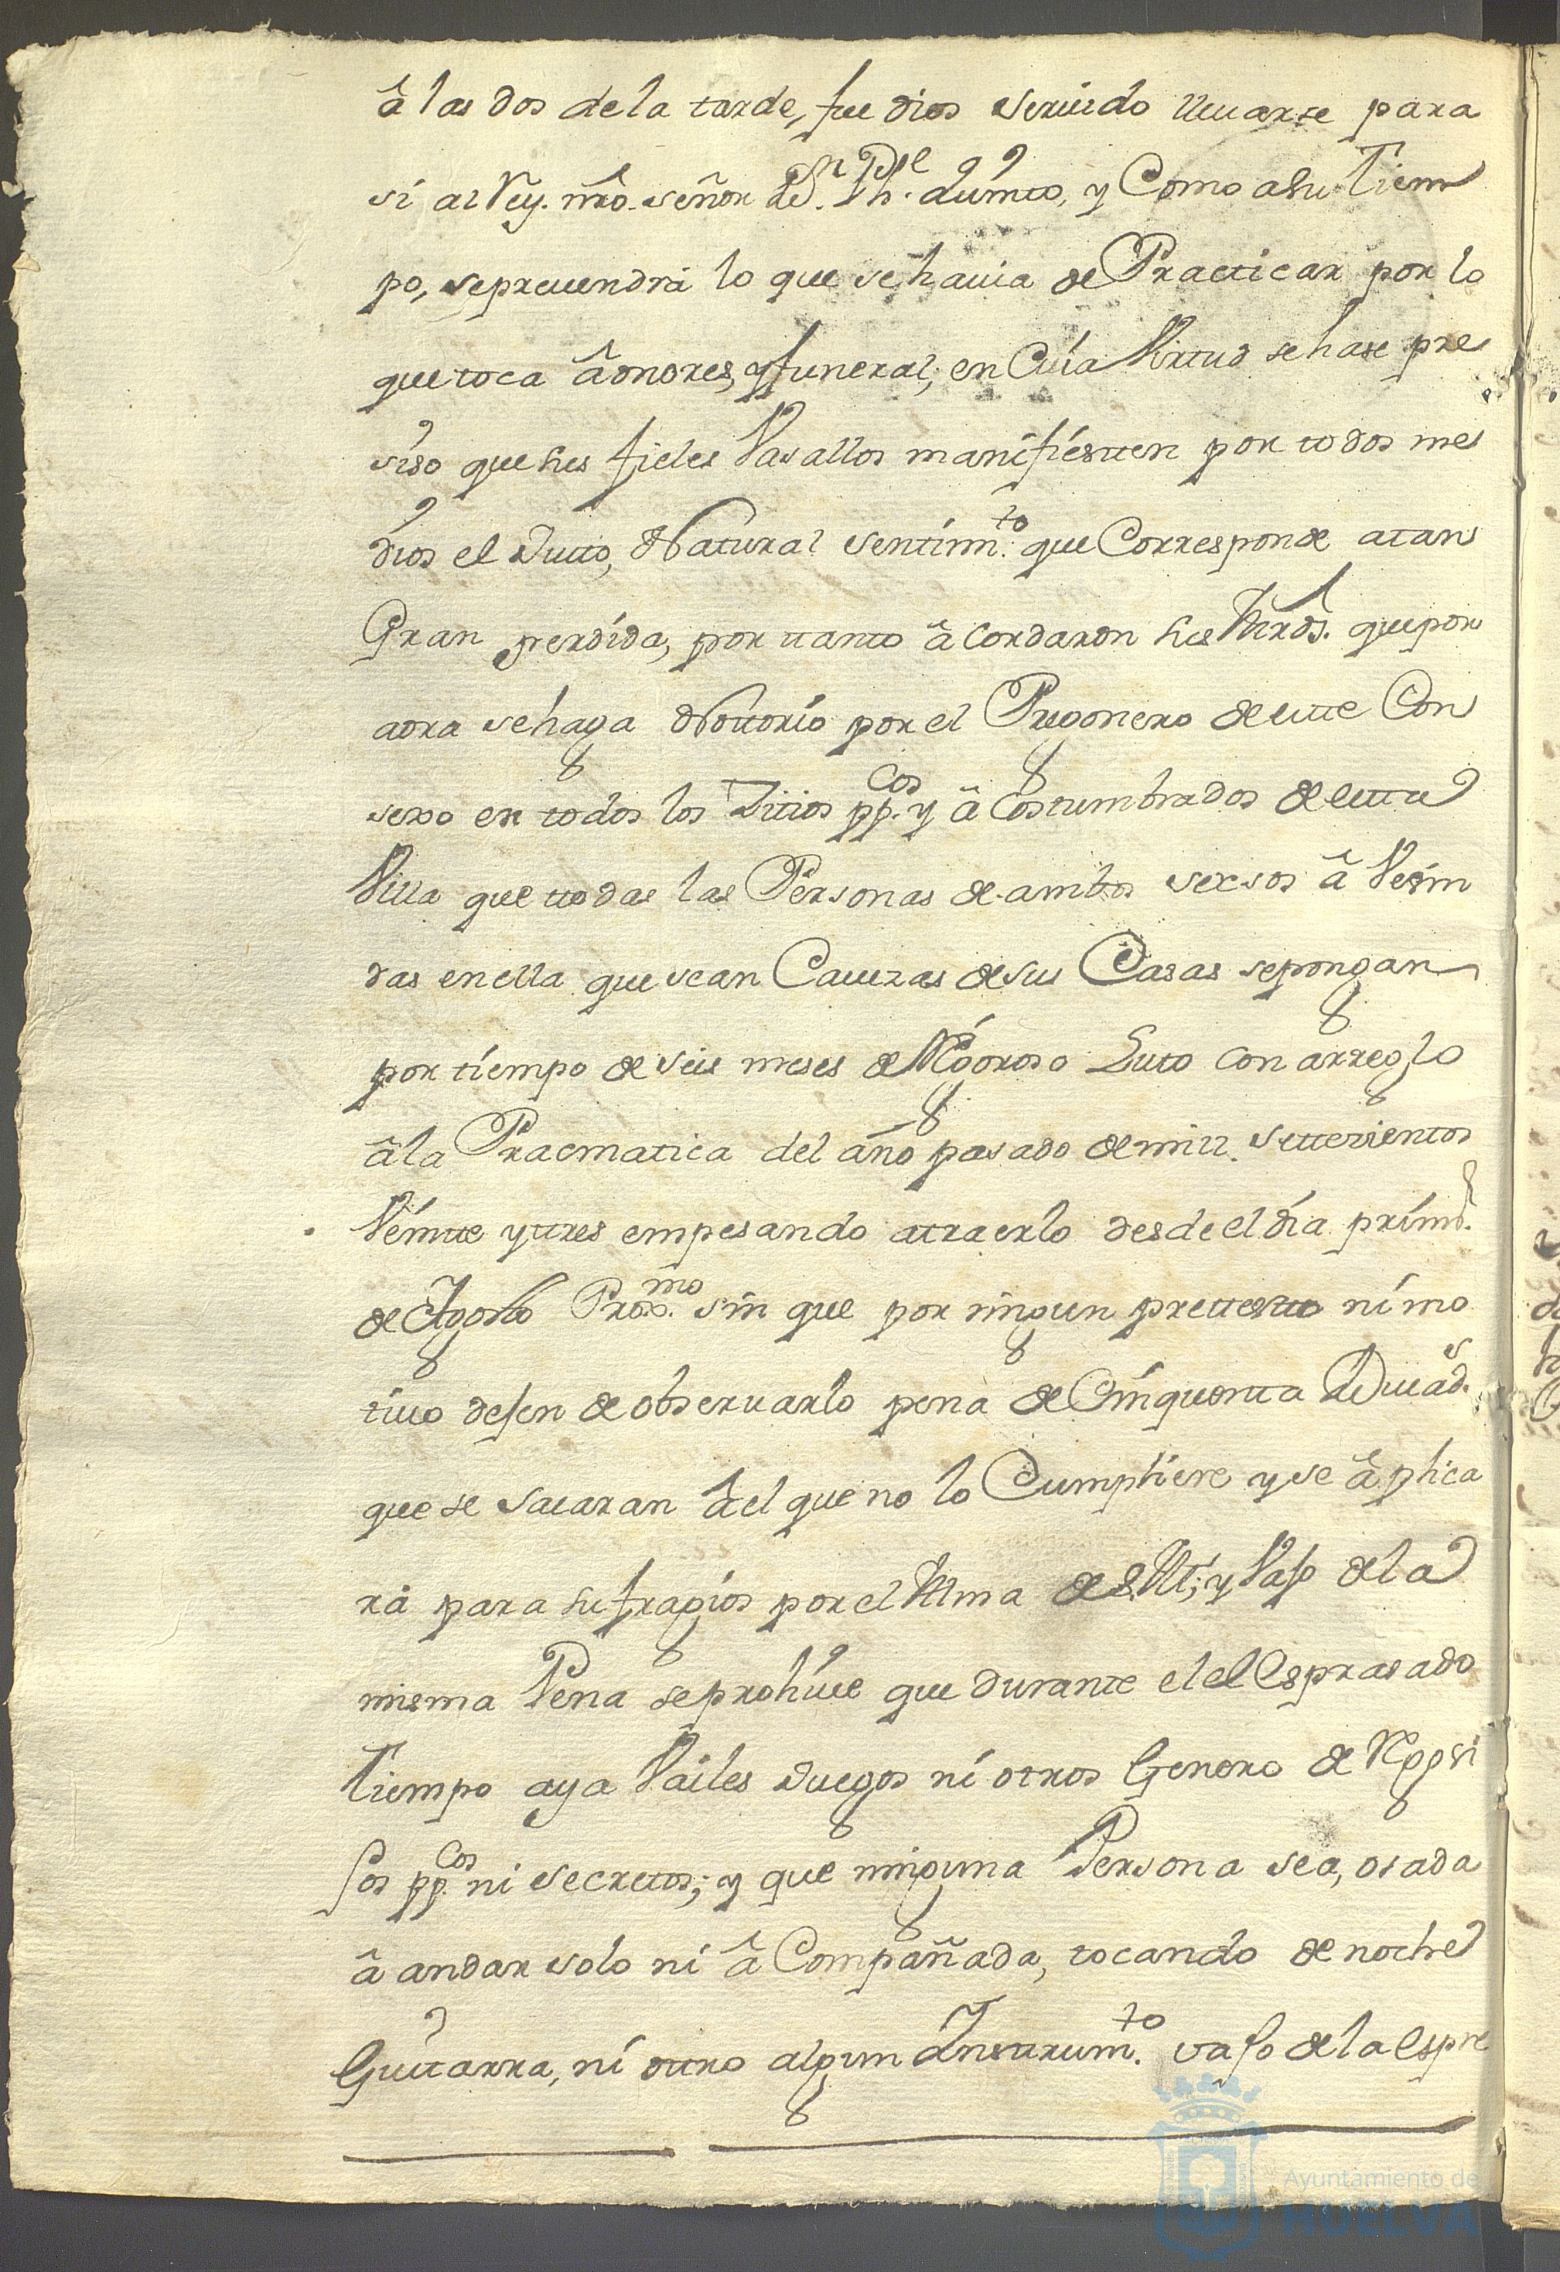 â las dos de la tarde, fue dios seruido lleuarse para
si al Rey. nrô. señor Dn. Phe. quinto, y Como a su Tiem
po, se preuendrá lo que se hauia de Practicar por lo
que toca â onores, y funeral; en Cuía Virtud se hase pre
siso que sus fieles Vasallos manifiestten por todos me
dios el Justto, Natural sentimto. que Corresponde a tan
Gran perdida, por ttanto â Cordaron sus Mrds. que por
aora se haga Nottorio por el Pregonero de estte Con
sexo en todos los Sitios ppcos. y â Costumbrados de estta
Villa que ttodas las Personas de ambos sexsos â Vesin
das en ella que sean Cauezas de sus Casas se pongan
por tiempo de seis meses de Rigoroso Luto con arreglo
â la Pracmatica del año pasado de mill. settezientos
Veintte y ttres empesando a traerlo desde el día primro.
de Agosto Proxmo. sin que por ningun prettestto ni mo
tiuo dejen de obseruarlo pena de Cinquentta Ducads.
que se sacaran âel que no lo Cumpliere y se âplica
rá para sufragios por el Alma de S. M.; y Vajo de la
misma Pena se prohiue que durante el el Espresado
Tiempo aya Vailes Juegos ni otros Genero de Regosi
Jos ppcos. ni secretos; y que ninguna Persona sea, osada
â andar solo ni â Compañada, tocando de noche
Guitarra, ni ottro algun Insttrumto. vajo de la Espre
Ayuntamiento de
HUELVA